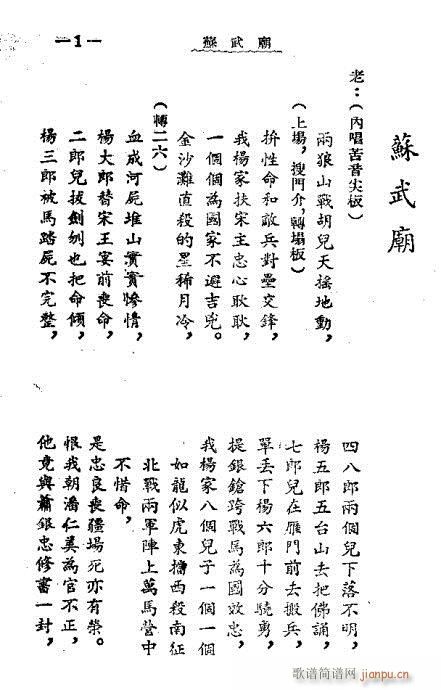 蘇武廟
—1—
蘇武廟
老：(內唱苦音尖板)
兩狼山戰胡兒天搖地動，
(上場，搜門介，轉塌板)
拚性命和敵兵對壘交鋒，
我楊家扶宋主忠心耿耿，
一個個為國家不避吉兇。
金沙灘直殺的星稀月冷，
(轉二六)
血成河屍堆山實實慘情，
楊大郎替宋王宴前喪命，
二郎兒拔劍刎也把命傾，
楊三郎被馬踏屍不完整，
四八郎兩個兒下落不明，
楊五郎五台山去把佛誦，
七郎兒在雁門前去搬兵，
單丟下楊六郎十分驍勇，
提銀鎗跨戰馬為國效忠，
我楊家八個兒子一個一個
如龍似虎東擋西殺南征
北戰兩軍陣上萬馬營中
不惜命，
是忠良喪疆場死亦有榮。
恨我朝潘仁美為官不正，
他竟與蕭銀忠修書一封，
歌谱简谱网
jianpu.cn